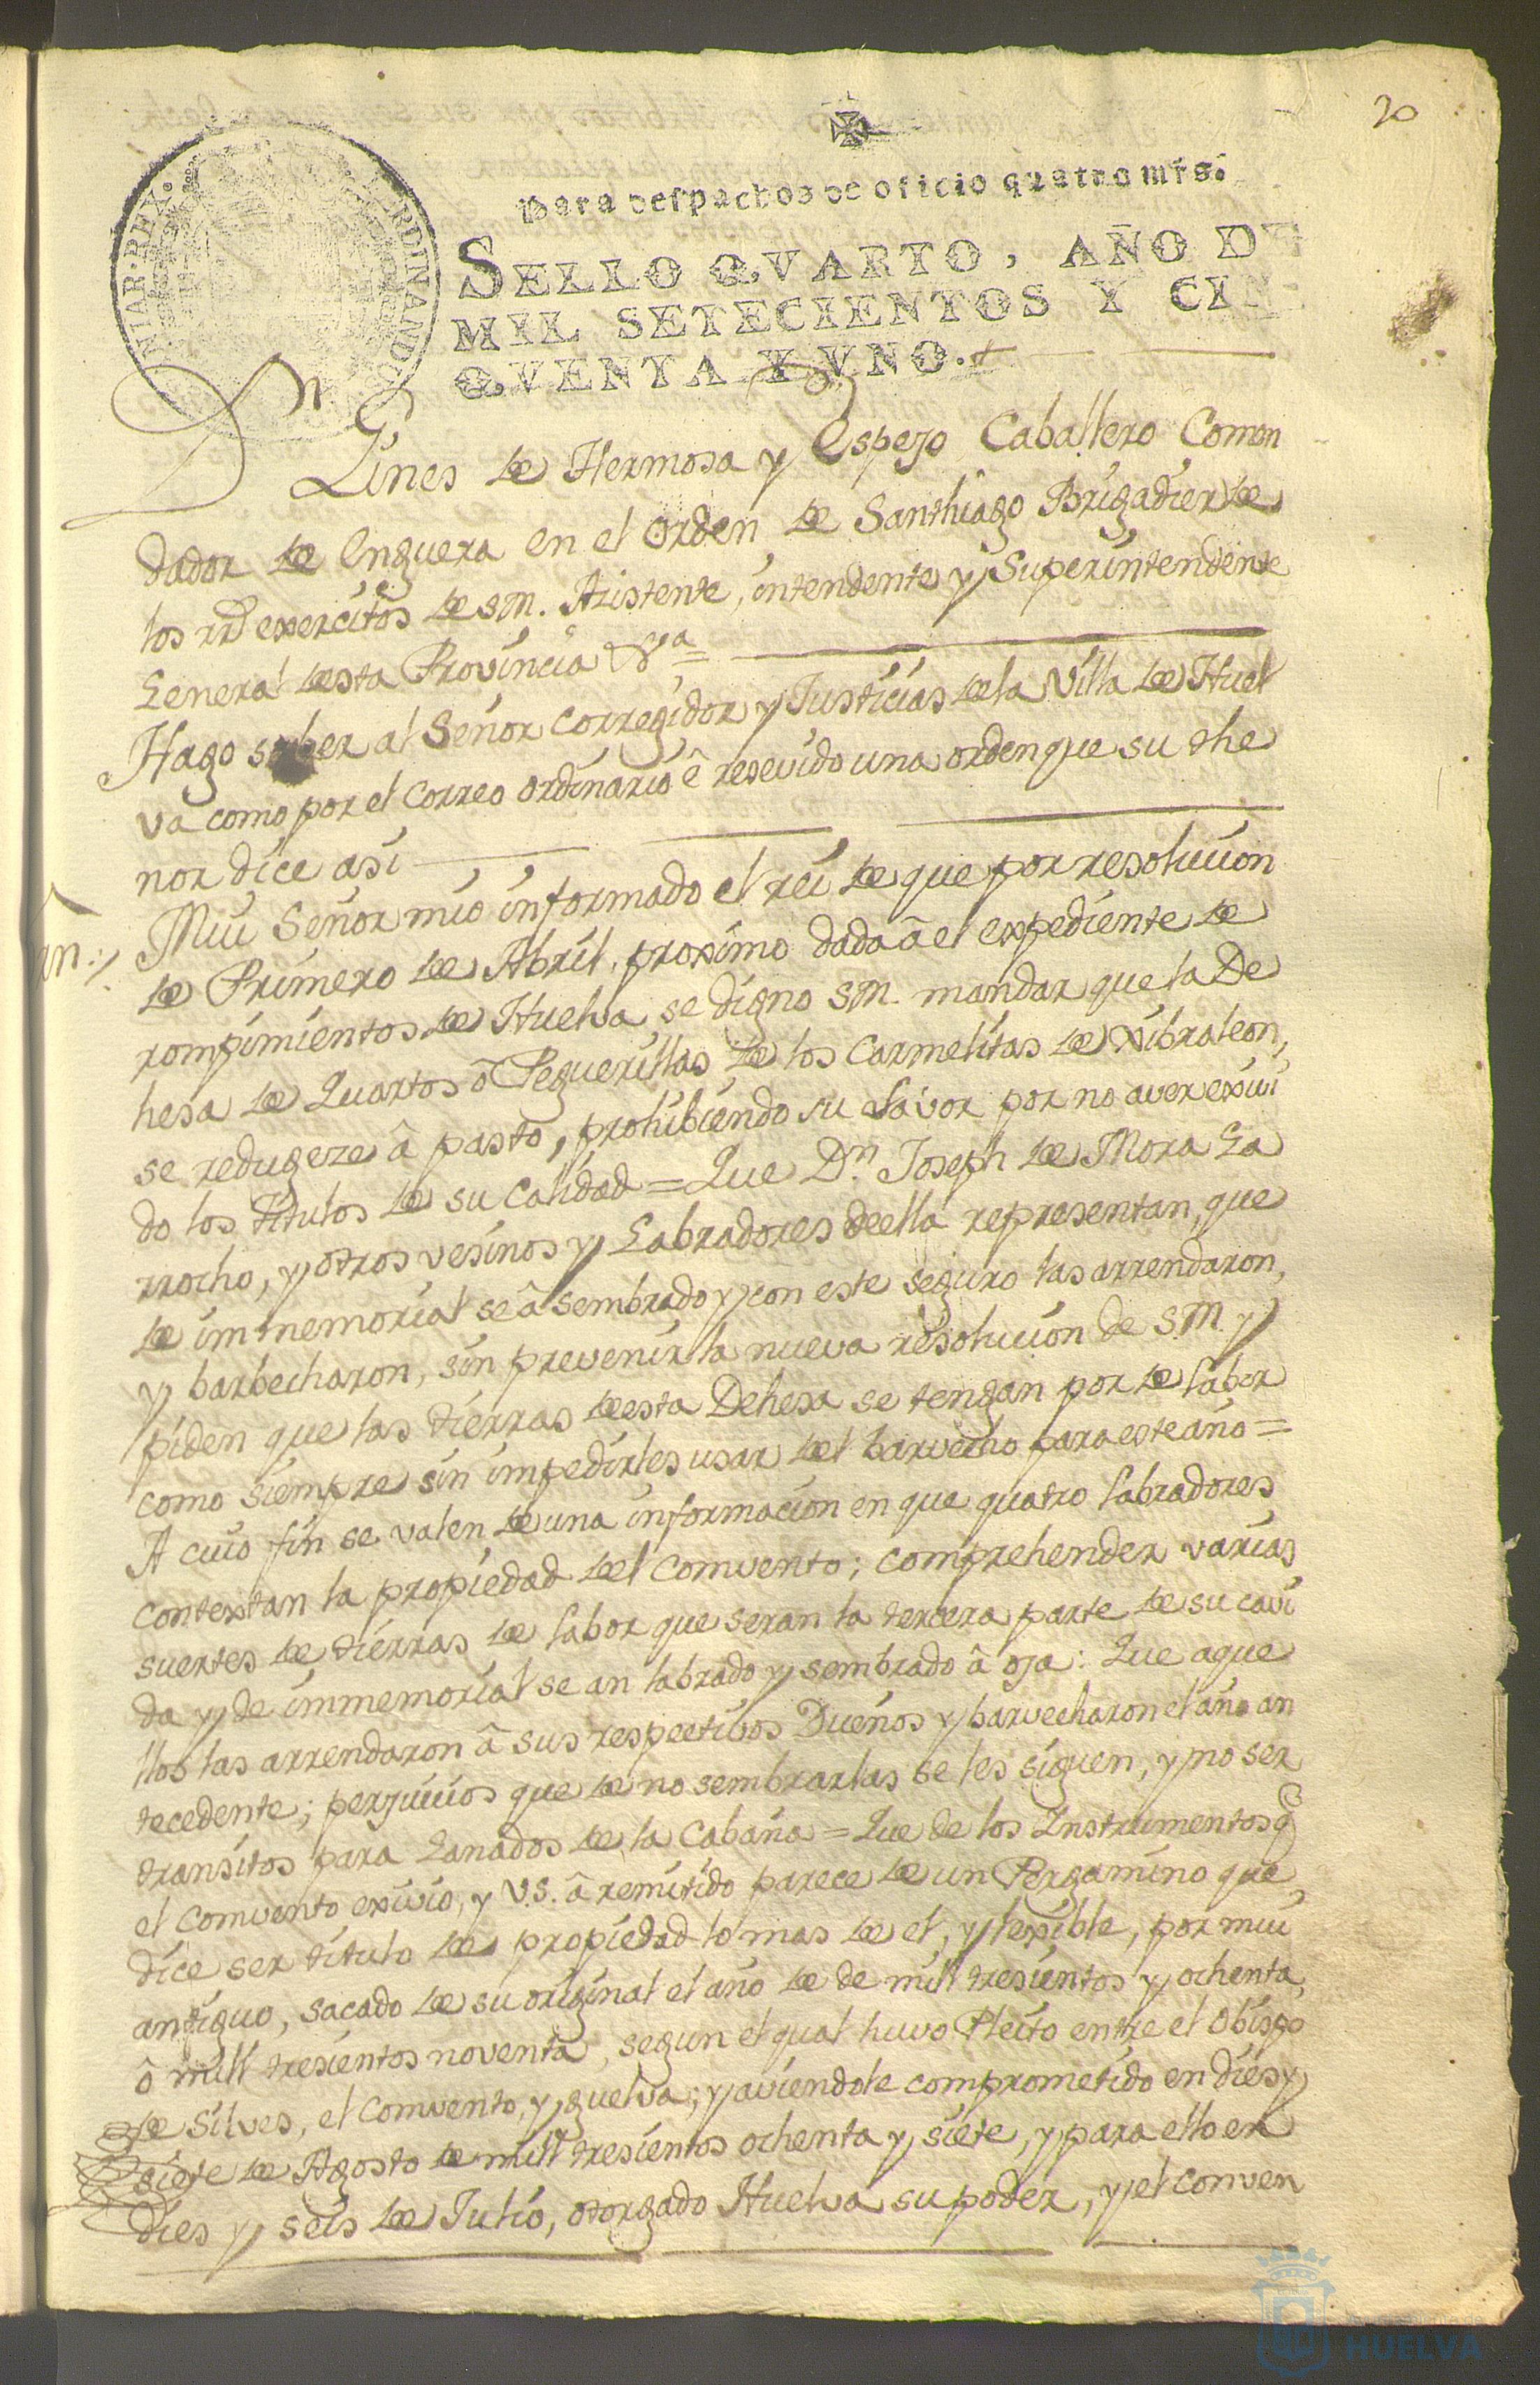 20
Para despachos de oficio quatro mrs.
SELLO QVARTO, AÑO DE
MIL SETECIENTOS Y CIN-
QVENTA Y VNO.
NIAR·REX·
FERDINANDUS
Dn Gines de Hermosa y Espejo Caballero Comen
dador de Enguera en el orden de Santhiago Brigadier de
los rrs exercitos de S.M. Asistente, intendente y Superintendente
General desta Provincia &a =
Hago saber al Señor Corregidor y Justicias de la Villa de Huel
va como por el Correo ordinario ê resevido una orden que su the
nor dice asi
Mui Señor mio informado el rei de que por resoluzion
de Primero de Abril, proximo dada â el expediente de
rompimientos de Huelva se digno S.M. mandar que la De
hesa de Quartos ô Peguerillas de los Carmelitas de Xibraleon,
se redugeze â pasto, prohibiendo su Lavor por no aver exivi
do los titulos de su calidad = Que Dn. Joseph de Mora Ga
rrocho, y otros vesinos y Labradores de ella representan, que
de immemorial se â sembrado y con este seguro las arrendaron,
y barbecharon, sin prevenir la nueva resoluzion de S.M. y
piden que las tierras de esta Dehesa se tengan por de labor
como siempre sin impedirles usar del barvecho para este año =
A cuio fin se valen de una informacion en que quatro labradores
contextan la propiedad del Comvento; comprehender varias
suertes de tierras de labor que seran la tercera parte de su cavi
da y de immemorial se an labrado y sembrado â oja: Que aque
llos las arrendaron â sus respectivos Dueños y barvecharon el año an
tecedente; perjuizios que de no sembrarlas se les siguen, y no ser
transitos para Ganados de la Cabaña = Que de los Instrumentos q
el Comvento exivio, y V.S. â remitido parece de un Pergamino que
dice ser titulo de propiedad lo mas de el, y lexible, por mui
antiguo, sacado de su original el año de de mill tresientos y ochenta,
ô mill tresientos noventa, segun el qual huvo Pleito entre el Obispo
de Silves, el Comvento, y guelva; y aviendole comprometido en dies y
siete de Agosto de mill tresientos ochenta y siete, y para ello en
dies y seis de Julio, otorgado Huelva su poder, y el Conven
HUELVA